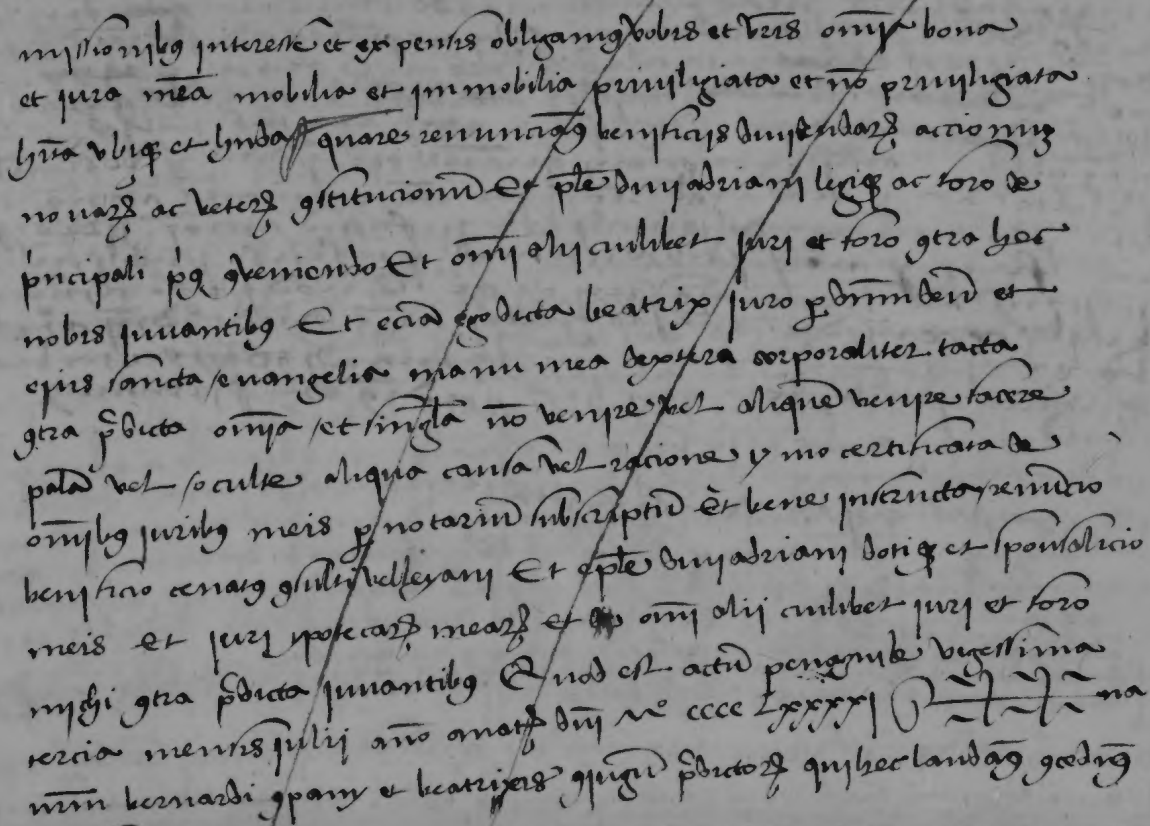 missionibus interesse et expensis obligamus vobis et vris omia bona
et iura mea mobilia et immobilia priviligiata et no priviligiata
hita ubiq et hnda quare renunciamus benificiis dividendarum accionum
novarum ac veterum constitucionum Et eple divi adriani legiq ac foro de
principali prius conveniendo Et omi alii cuilibet iuri et foro contra hec
nobis iuvantibus Et ecia ego dicta beatrix iuro per dnm deu et
ejus sancta evangelia manu mea dextera corporaliter tacta
contra predicta omia et singla no venire vel alique venire facere
pala vel oculte aliqua causa vel racione ymo certificata de
omibus iuribus meis per notariu subscriptu et bene instructa renucio
benificio cenatus consulti velleyani Et eple divi adriani dotiq et sponsalicio
meis et iuri ypotecarum mearum et omi alii cuilibet iuri et foro
michi contra predicta iuvantibus Quod est actu vigessima
tercia mensis iulii ano anatt dni Mo cccc Lxxxxi na
nrm bernardi company et beatricis coniugu predictorum qui hec laudamus concedimus